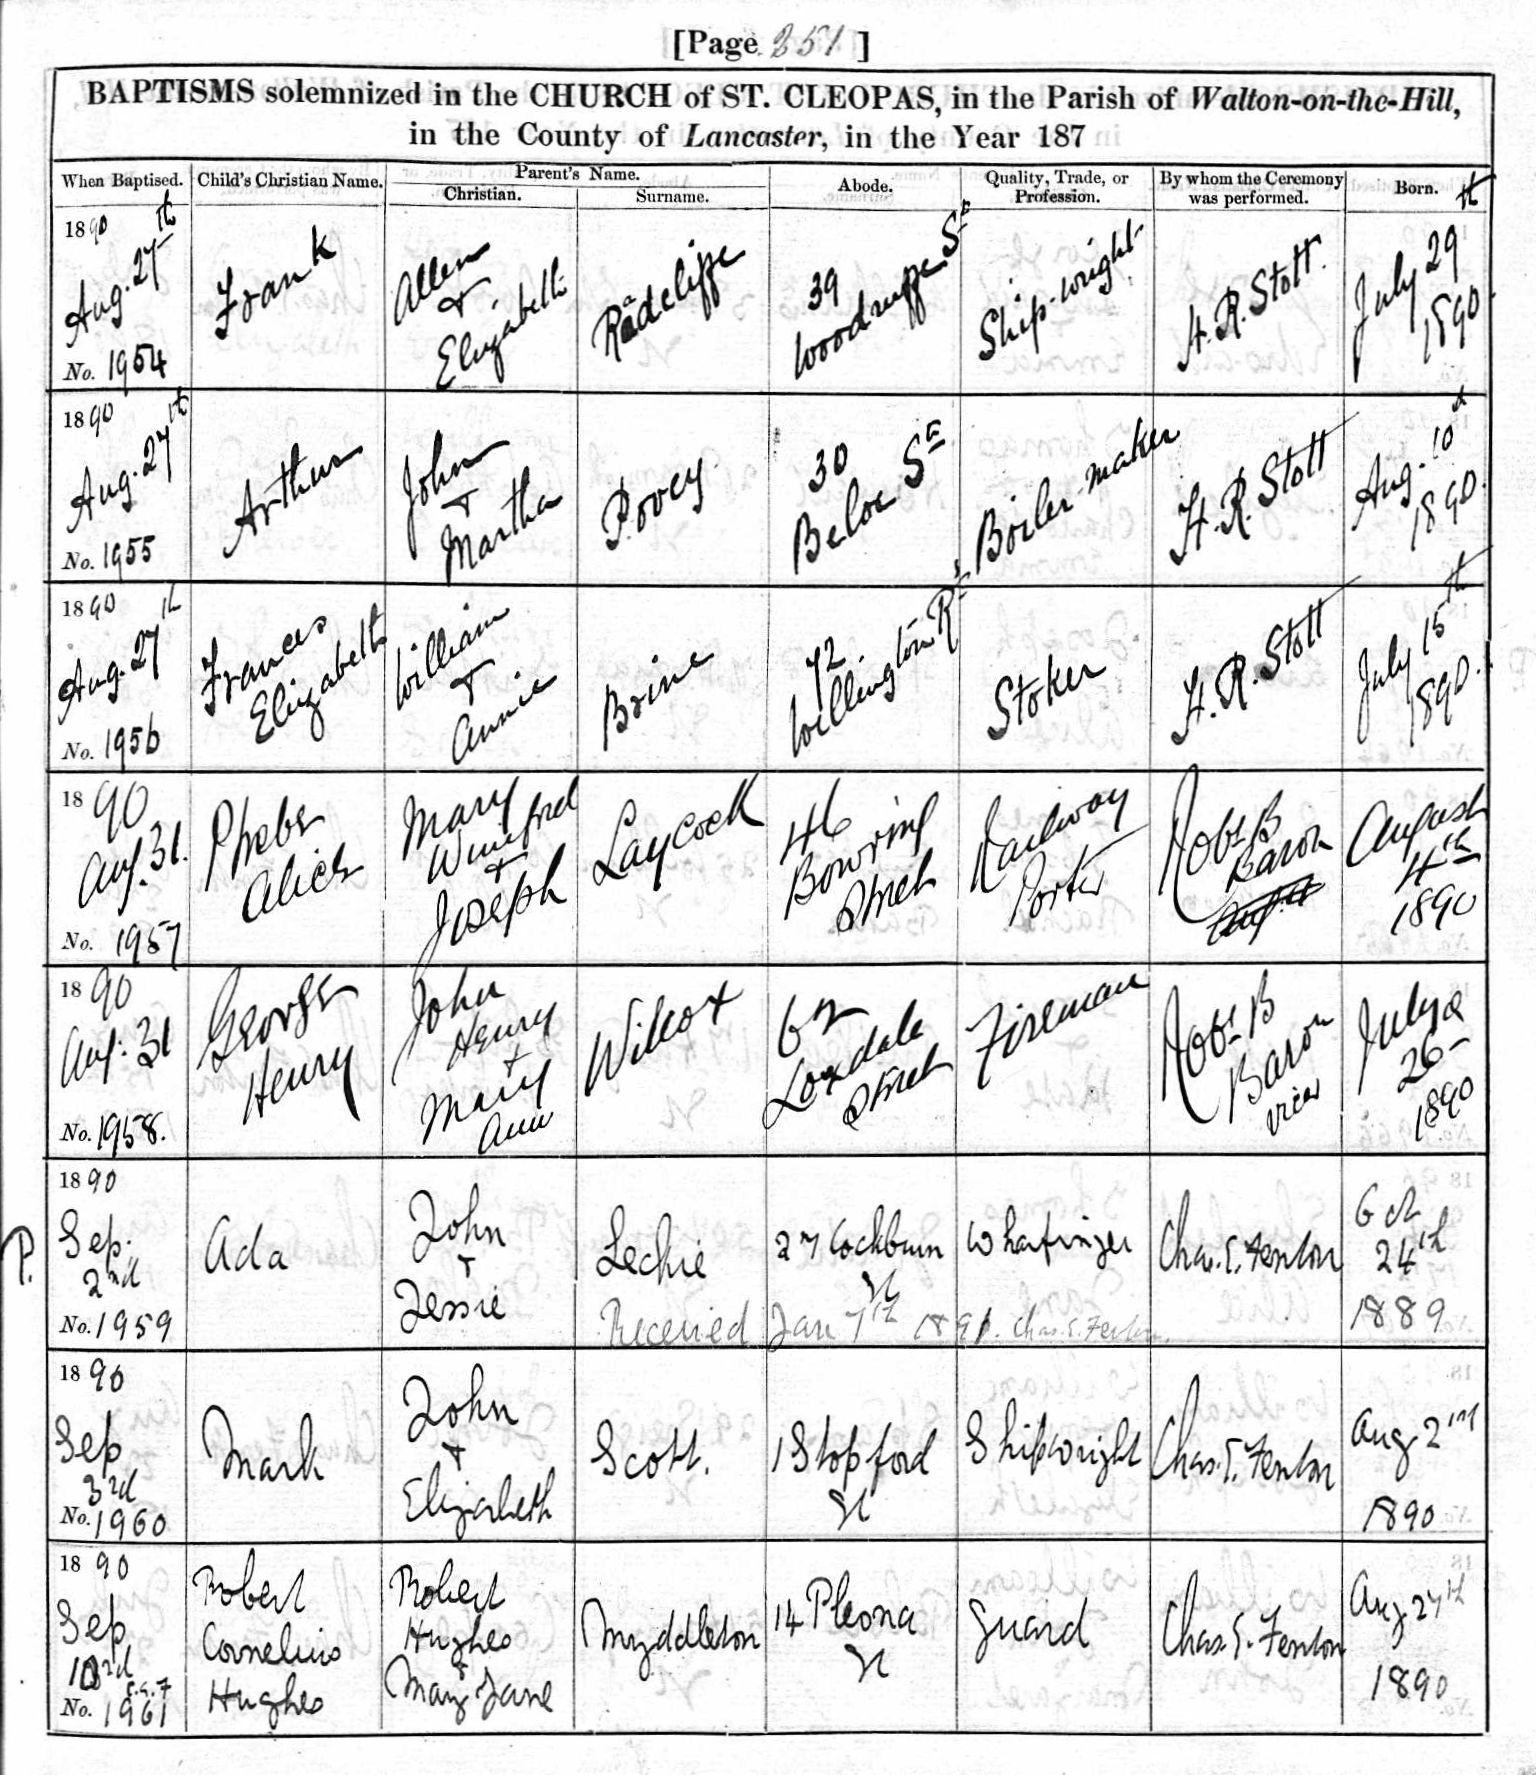 [Page 251]
BAPTISMS solemnized in the CHURCH of ST. CLEOPAS, in the Parish of Walton-on-the-Hill,
in the County of Lancaster, in the Year 187
When Baptised.
Child's Christian Name.
Parent's Name.
Christian.
Surname.
Abode.
Quality, Trade, or
Profession.
By whom the Ceremony
was performed.
Born.
1890
Aug. 27th
No. 1954
Frank
Allen
+
Elizabeth
Radcliffe
39
Woodruffe St
Ship-wright
H. R. Stott.
July 29th
1890.
1890
Aug. 27th
No. 1955
Arthur
John
+
Martha
Povey
30
Beloe St
Boiler-maker
H. R. Stott
Aug. 10th
1890.
1890
Aug. 27th
No. 1956
Frances
Elizabeth
William
+
Annie
Brine
72
Wellington Rd
Stoker
H. R. Stott
July 15th
1890.
1890
Aug. 31.
No. 1957
Phebe
Alice
Mary
Winifred
+
Joseph
Laycock
46
Bowring
Street
Railway
Porter
Robt B
Baron
August
4th
1890
1890
Aug: 31
No. 1958.
George
Henry
John
Henry
+
Mary
Ann
Wilcox
Loxdale
Street
Fireman
Robt B
Baron
Vicar
July
26
1890
P.
1890
Sep.
2nd
No. 1959
Ada
John
+
Jessie
Leckie
27 Cockburn
St
Wharfinger
Chas. E. Fenton
Oct
24th
1889
Received Jan 7th 1891. Chas. E. Fenton.
1890
Sep
3rd
No. 1960
Mark
John
+
Elizabeth
Scott.
1 Stopford
St
Shipwright
Chas. E. Fenton
Aug 2nd
1890
1890
Sep
No. 1961
Robert
Cornelius
Hughes
Robert
Hughes
+
Mary Jane
Myddleton
14 Pleona
St
Guard
Chas. E. Fenton
Aug 27th
1890